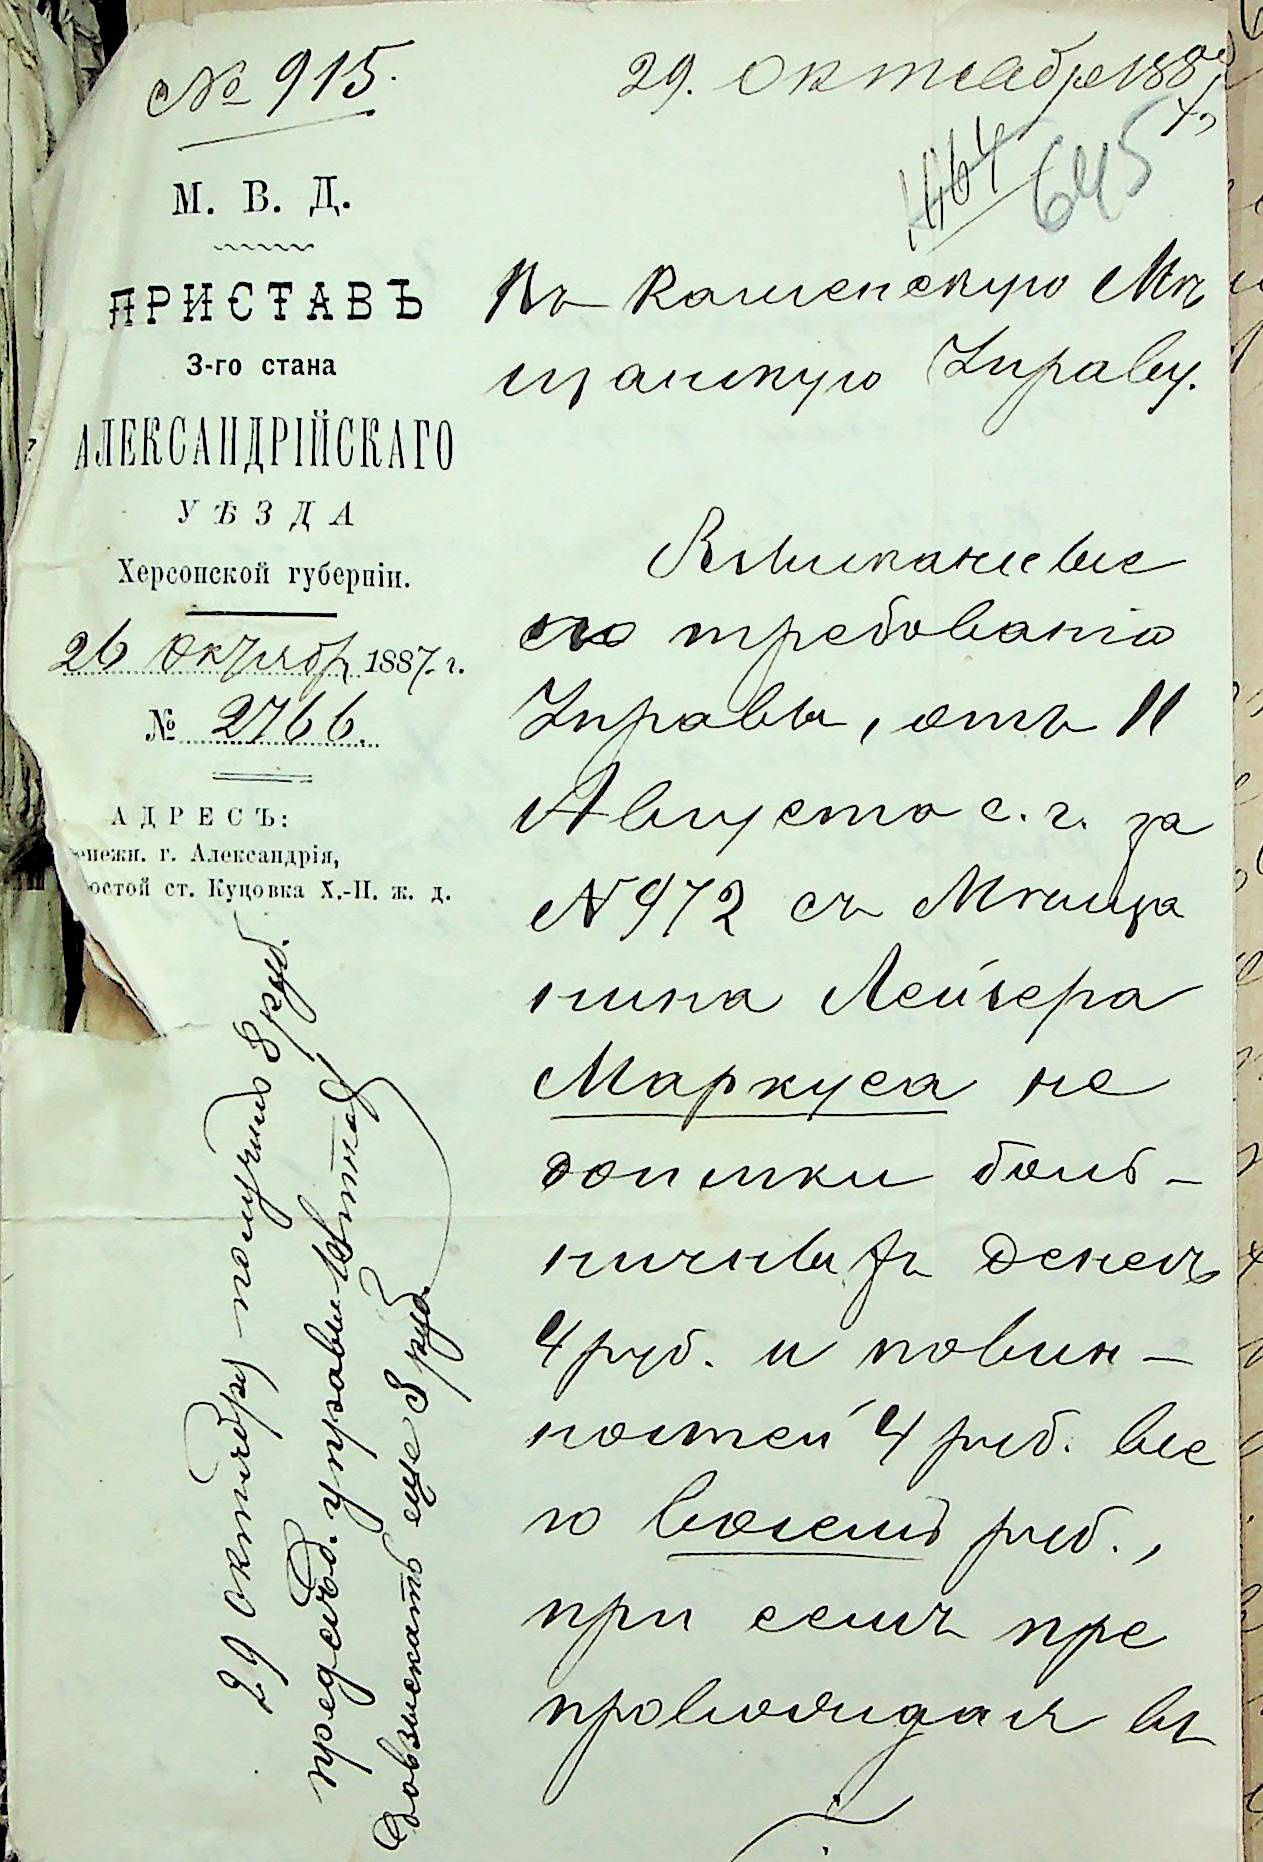 № 915.
29. Октября 188
7 г.
1164 645
М. В. Д.
ПРИСТАВЪ
3-го стана
АЛЕКСАНДРІЙСКАГО
УѢЗДА
Херсонской губерніи.
26 Октября 1887. г.
№ 2766.
АДРЕСЪ:
енежн. г. Александрія,
остой ст. Куцовка Х.-Н. ж. д.
Въ Каменскую Мѣ
щанскую Управу.
Взысканные
по требованію
Управы, отъ 11
Августа с. г. за
N 972 съ Мѣща
нина Лейзера
Маркуса не
доимки боль-
ничныхъ денегъ
4 руб. и повин-
ностей 4 руб. все
го восемь руб.,
при семъ пре
провождая въ
29 октября получилъ 8 руб.
предсѣд. управы
Довзыскать еще 8 руб.